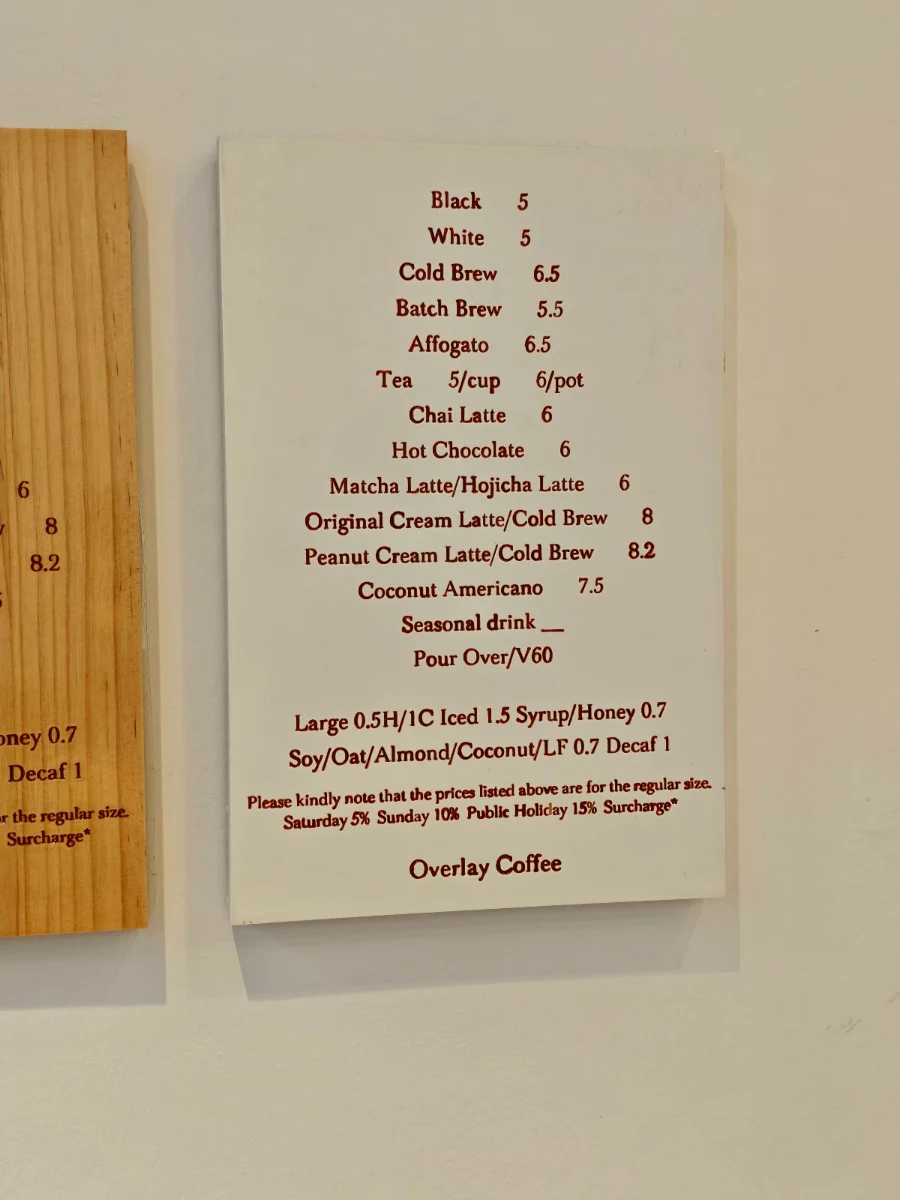 6
8
8.2
oney 0.7
Decaf 1
the regular size.
Surcharge*
Black 5
White 5
Cold Brew 6.5
Batch Brew 5.5
Affogato 6.5
Tea 5/cup 6/pot
Chai Latte 6
Hot Chocolate 6
Matcha Latte/Hojicha Latte 6
Original Cream Latte/Cold Brew 8
Peanut Cream Latte/Cold Brew 8.2
Coconut Americano 7.5
Seasonal drink __
Pour Over/V60
Large 0.5H/1C Iced 1.5 Syrup/Honey 0.7
Soy/Oat/Almond/Coconut/LF 0.7 Decaf 1
Please kindly note that the prices listed above are for the regular size.
Saturday 5% Sunday 10% Public Holiday 15% Surcharge*
Overlay Coffee